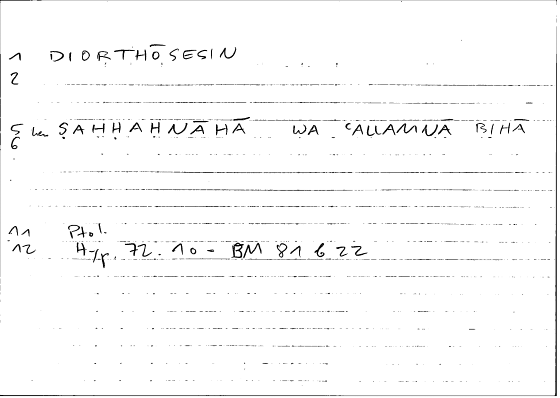 1 DIORTHŌSESIN
2
5 ṢAḤḤAḤNĀHĀ WA ʿALLAMNĀ BIHĀ
6
11 Ptol.
12 Hyp. 72.10 - BM 81 b 22